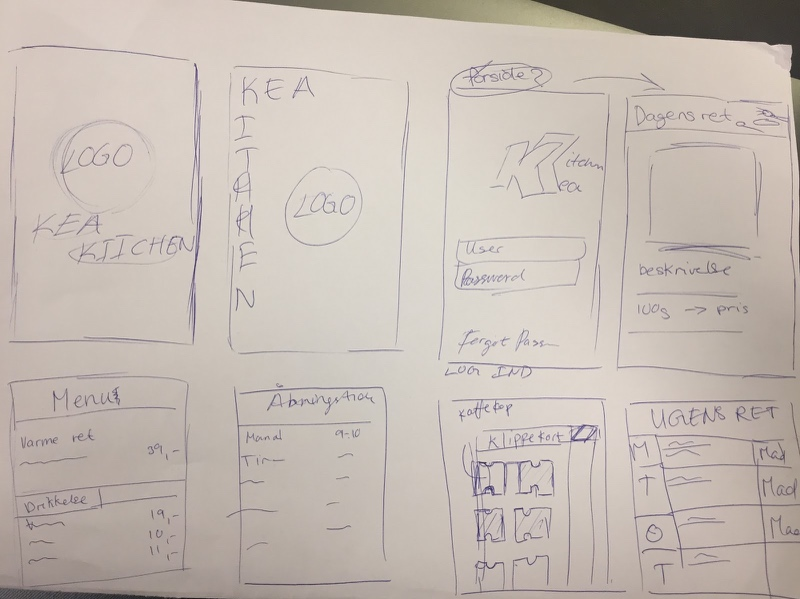 LOGO
KEA
KIICHEN
KEA
I
T
H
E
N
LOGO
Forside?
Kitchen
Kea
User
Password
Forgot Pass
LOG IND
Dagens ret
beskrivelse
100g -> pris
Menu
Varme ret
39,-
Drikkelse
19,-
10,-
11,-
Åbningstider
Mand 9-10
Tir
kaffekop
Klippekort
UGENS RET
M Mad
T Mad
O Mad
T